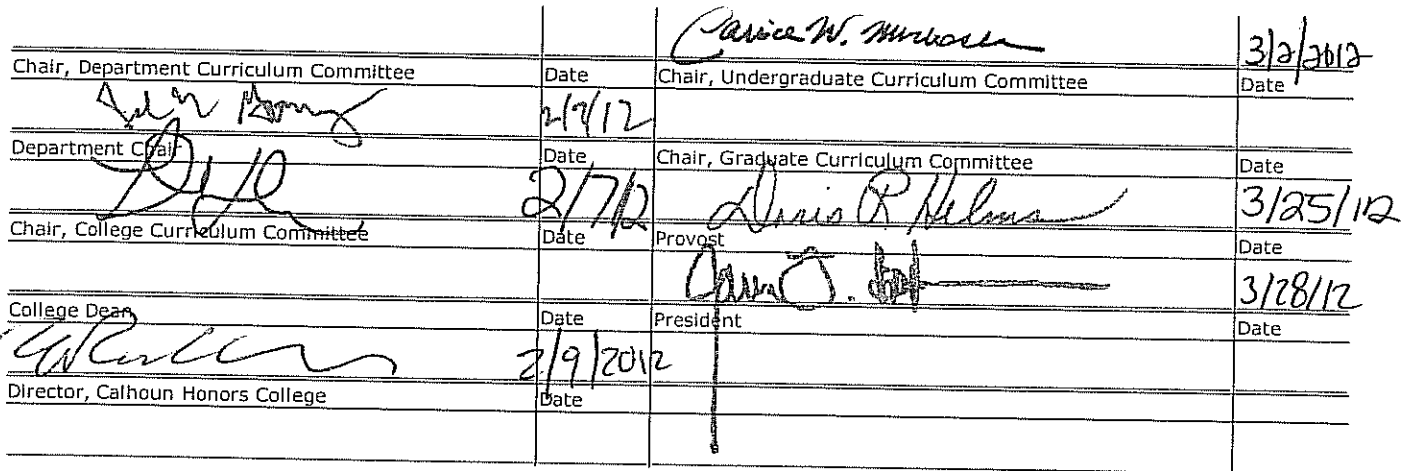 3/2/2012
Chair, Department Curriculum Committee Date Chair, Undergraduate Curriculum Committee Date
2/7/12
Department Chair Date Chair, Graduate Curriculum Committee Date
2/7/12 Doris R Helms 3/25/12
Chair, College Curriculum Committee Date Provost Date
3/28/12
College Dean Date President Date
2/9/2012
Director, Calhoun Honors College Date